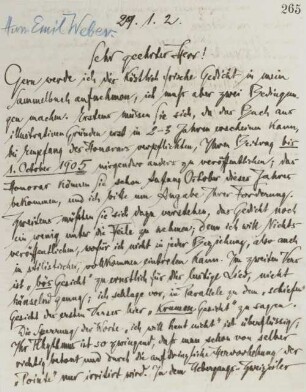 265
Hans Emil Weber.
29.1.2.
Sehr geehrter Herr!
Gern werde ich das köstlich frische Gedicht in mein
Sammelbuch aufnehmen, ich muß aber zwei Bedingun-
gen machen. Erstens müssen Sie sich, da das Buch aus
illustrativen Gründen erst in 2-3 Jahren erscheinen kann,
bei Empfang des Honorars verpflichten, Ihren Beitrag bis
1. October 1905 nirgendwo anders zu veröffentlichen; das
Honorar können Sie schon Anfang October dieses Jahres
bekommen, und ich bitte um Angabe Ihrer Forderung.
Zweitens müßten Sie sich dazu verstehen, das Gedicht noch
ein wenig unter die Feile zu nehmen; denn ich will Nichts
veröffentlichen, wofür ich nicht in jeder Beziehung, also auch
in stilistischer, vollkommen eintreten kann. Im zweiten Vers
ist „bös Gesicht" zu ernstlich für das lustige Lied, nicht
genug; ich schlage vor, in Parallele zu dem „schiefen"
Gesicht der ersten Verse hier „krummen Gesicht" zu sagen.
Die Sperrung der Worte „ich will heut nicht" ist überflüssig;
Ihr Rhythmus ist so zwingend, daß man schon von selber
richtig betont und durch die aufdringliche Hervorhebung der
„Pointe" nur irritiert wird. In dem Uebergangs-Zweizeiler